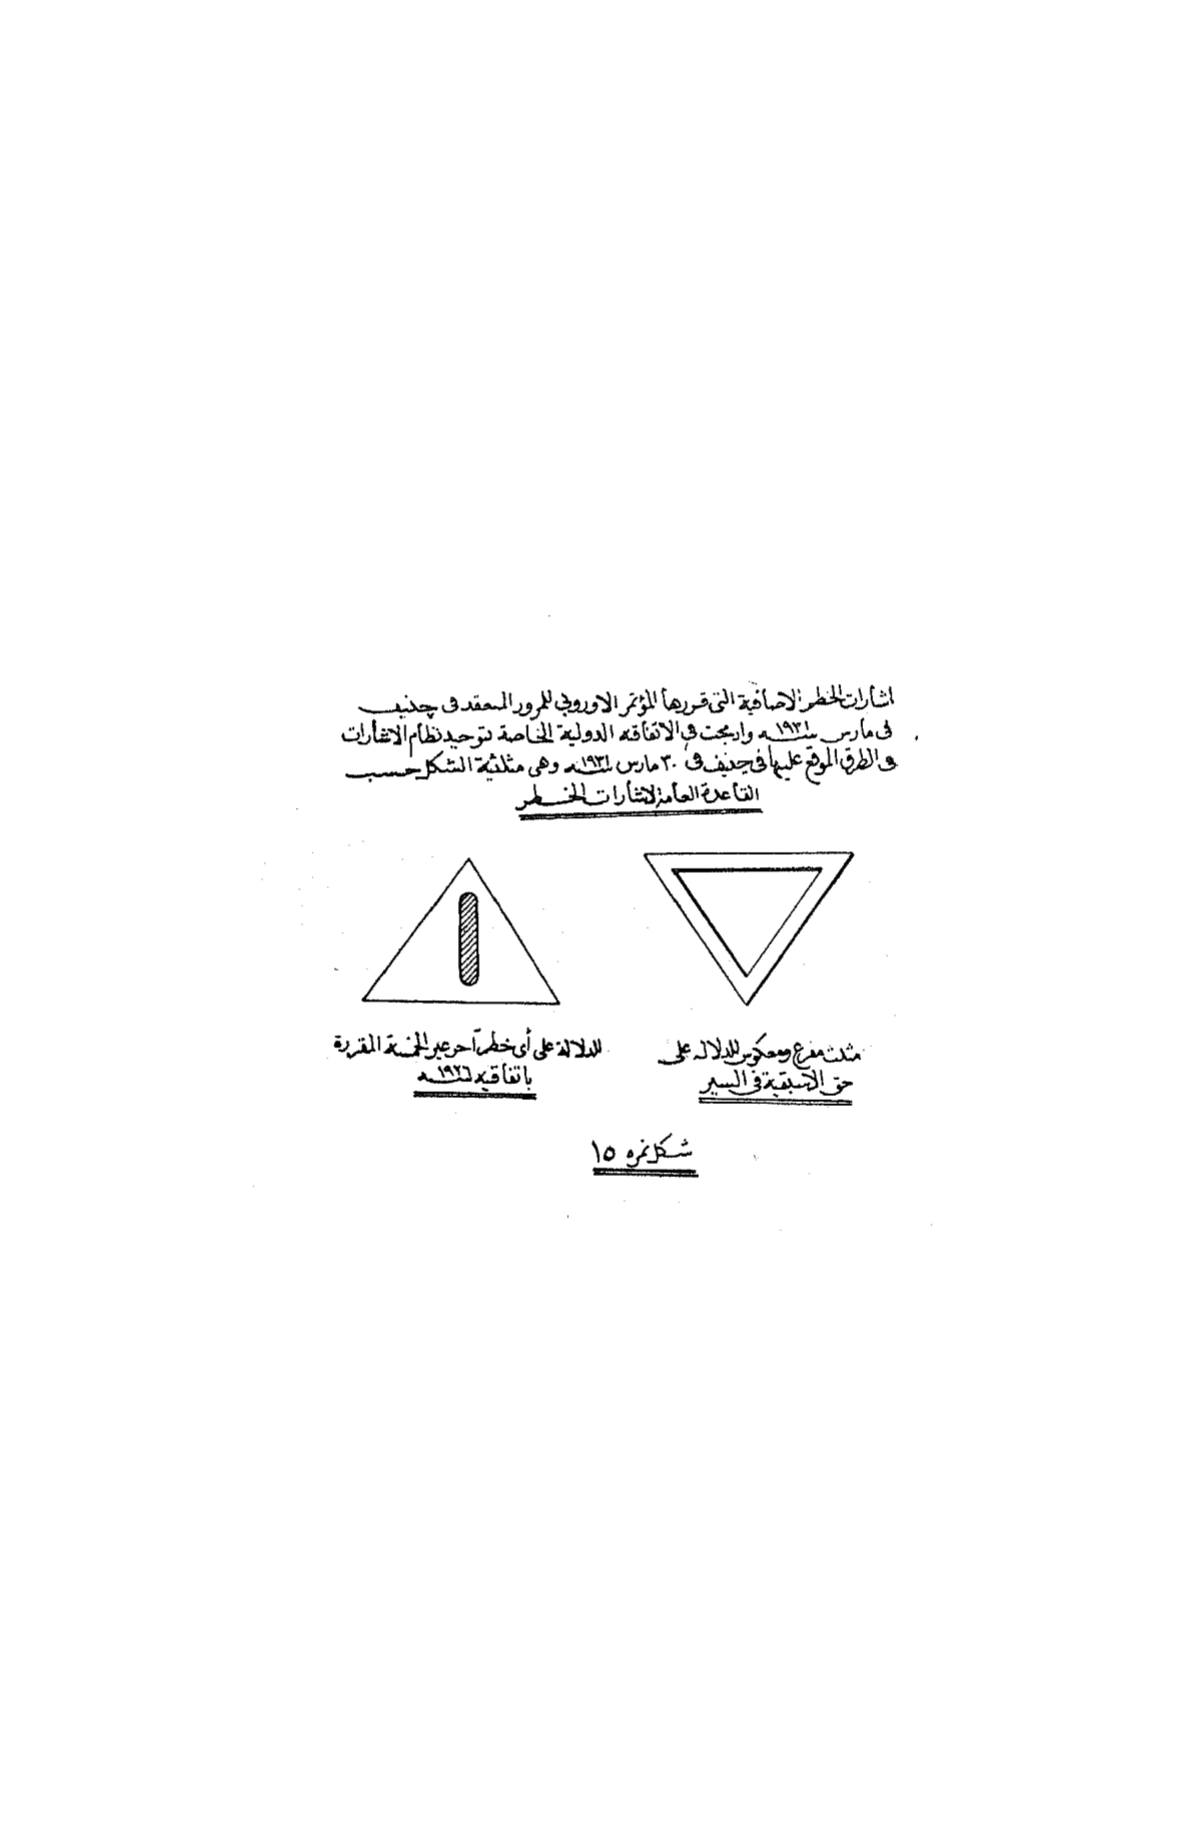 اشارات الخطر الاضافية التى قررها المؤتمر الاوروبي للمرور المنعقد فى چنيف
فى مارس سنة ١٩٣١ وادمجت في الاتفاقيه الدولية الخاصة بتوحيد نظام الاشارات
فى الطرق الموقع عليها في چنيف فى ٣٠ مارس سنة ١٩٣١ وهى مثلثية الشكل حسب
القاعدة العامة لاشارات الخطر
مثلث مفرغ ومعكوس للدلالة على
حق الاسبقية فى السير
للدلالة على أى خطر آخر غير الخمسة المقررة
باتفاقية سنة ١٩٢٦
شكل نمره ١٥